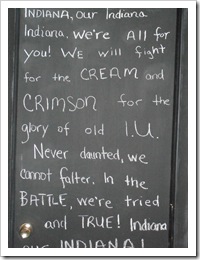 INDIANA, OUR Indiana
Indiana, we're ALL for
you! WE will fight
for the CREAM and
CRIMSON for the
glory of old I.U.
Never daunted, we
cannot falter. In the
BATTLE, we're tried
and TRUE! Indiana
OUR INDIANA!